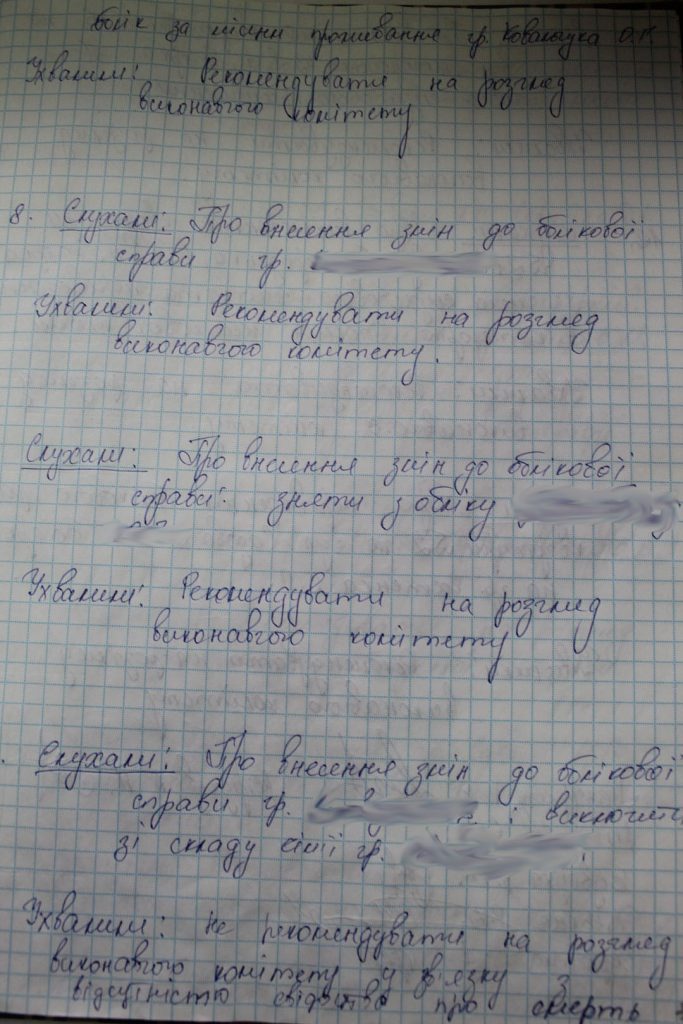 за місцем проживання гр. Ковальчука О.П.
Ухвалили: Рекомендувати на розгляд
виконавчого комітету
8. Слухали: Про внесення змін до облікової
справи гр.
Ухвалили: Рекомендувати на розгляд
виконавчого комітету.
Слухали: Про внесення змін до облікової
справи: зняти з обліку
Ухвалили: Рекомендувати на розгляд
виконавчого комітету
Слухали: Про внесення змін до облікової
справи гр. : виключити
зі складу сім'ї гр.
Ухвалили: не рекомендувати на розгляд
виконавчого комітету у зв'язку з
відсутністю свідоцтва про смерть